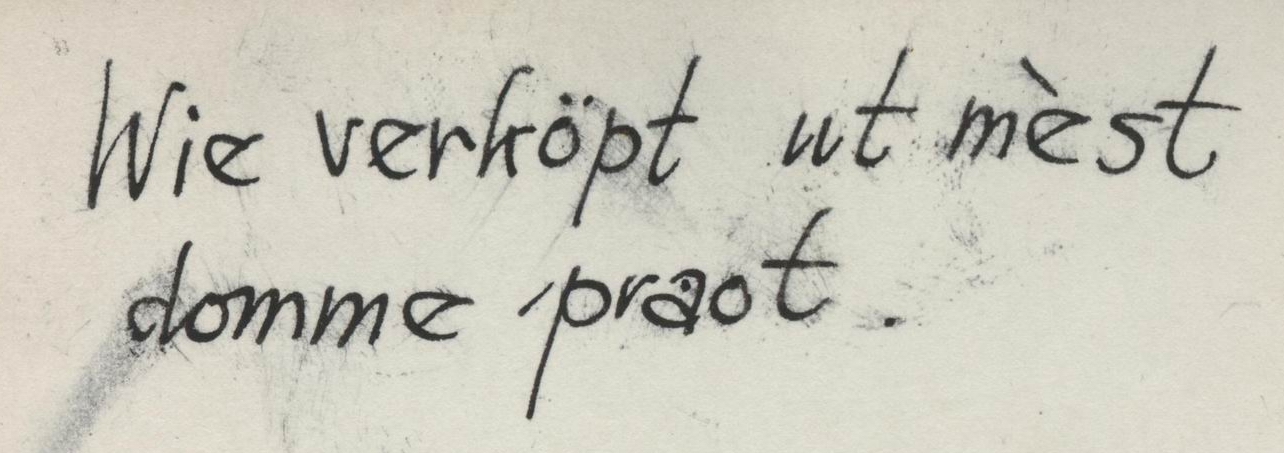 Wie verköpt ut mèst
domme praot.